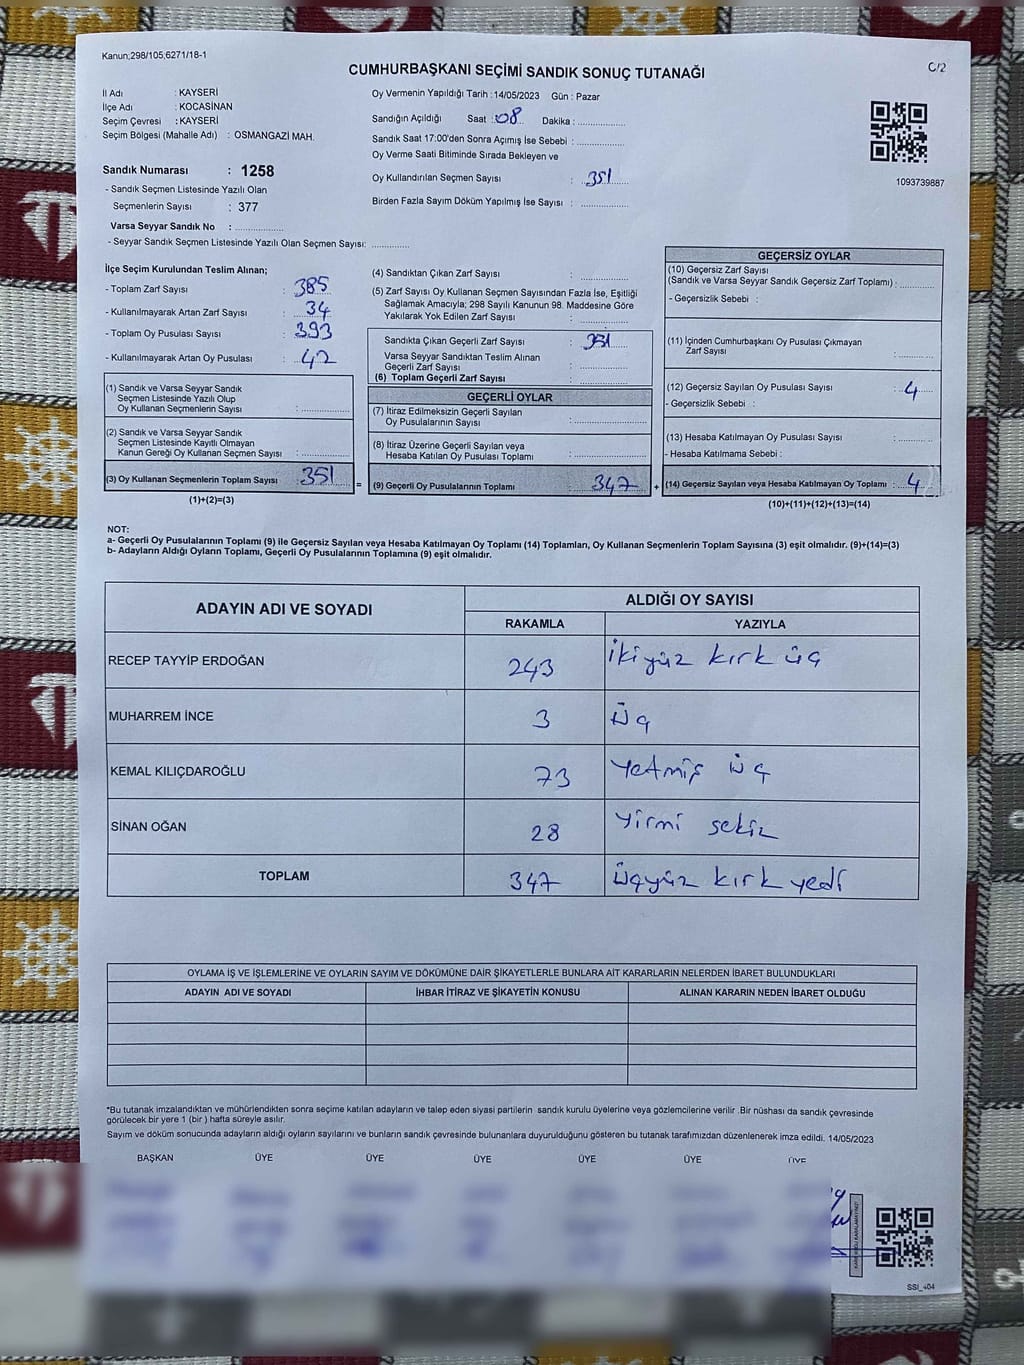 Kanun;298/105;6271/18-1
C/2
CUMHURBAŞKANI SEÇİMİ SANDIK SONUÇ TUTANAĞI
İl Adı : KAYSERİ
İlçe Adı : KOCASİNAN
Seçim Çevresi : KAYSERİ
Seçim Bölgesi (Mahalle Adı) : OSMANGAZİ MAH.
Sandık Numarası : 1258
- Sandık Seçmen Listesinde Yazılı Olan
Seçmenlerin Sayısı : 377
Varsa Seyyar Sandık No : ................
- Seyyar Sandık Seçmen Listesinde Yazılı Olan Seçmen Sayısı: ............
Oy Vermenin Yapıldığı Tarih : 14/05/2023 Gün : Pazar
Sandığın Açıldığı Saat : 08 Dakika : ..............
Sandık Saat 17:00'den Sonra Açımış İse Sebebi : ..............
Oy Verme Saati Bitiminde Sırada Bekleyen ve
Oy Kullandırılan Seçmen Sayısı : 351
Birden Fazla Sayım Döküm Yapılmış İse Sayısı : ..............
1093739887
İlçe Seçim Kurulundan Teslim Alınan;
- Toplam Zarf Sayısı : 385
- Kullanılmayarak Artan Zarf Sayısı : 34
- Toplam Oy Pusulası Sayısı : 393
- Kullanılmayarak Artan Oy Pusulası : 42
(1) Sandık ve Varsa Seyyar Sandık
Seçmen Listesinde Yazılı Olup
Oy Kullanan Seçmenlerin Sayısı : ..............
(2) Sandık ve Varsa Seyyar Sandık
Seçmen Listesinde Kayıtlı Olmayan
Kanun Gereği Oy Kullanan Seçmen Sayısı : ..............
(3) Oy Kullanan Seçmenlerin Toplam Sayısı : 351
(1)+(2)=(3)
=
(4) Sandıktan Çıkan Zarf Sayısı : ..............
(5) Zarf Sayısı Oy Kullanan Seçmen Sayısından Fazla İse, Eşitliği
Sağlamak Amacıyla; 298 Sayılı Kanunun 98. Maddesine Göre
Yakılarak Yok Edilen Zarf Sayısı : ..............
Sandıkta Çıkan Geçerli Zarf Sayısı : 351
Varsa Seyyar Sandıktan Teslim Alınan
Geçerli Zarf Sayısı : ..............
(6) Toplam Geçerli Zarf Sayısı : ..............
GEÇERLİ OYLAR
(7) İtiraz Edilmeksizin Geçerli Sayılan
Oy Pusulalarının Sayısı : ..............
(8) İtiraz Üzerine Geçerli Sayılan veya
Hesaba Katılan Oy Pusulası Toplamı : ..............
(9) Geçerli Oy Pusulalarının Toplamı : 347
+
GEÇERSİZ OYLAR
(10) Geçersiz Zarf Sayısı
(Sandık ve Varsa Seyyar Sandık Geçersiz Zarf Toplamı) : ..............
- Geçersizlik Sebebi :
(11) İçinden Cumhurbaşkanı Oy Pusulası Çıkmayan
Zarf Sayısı : ..............
(12) Geçersiz Sayılan Oy Pusulası Sayısı : 4
- Geçersizlik Sebebi :
(13) Hesaba Katılmayan Oy Pusulası Sayısı : ..............
- Hesaba Katılmama Sebebi :
(14) Geçersiz Sayılan veya Hesaba Katılmayan Oy Toplamı : 4
(10)+(11)+(12)+(13)=(14)
NOT:
a- Geçerli Oy Pusulalarının Toplamı (9) ile Geçersiz Sayılan veya Hesaba Katılmayan Oy Toplamı (14) Toplamları, Oy Kullanan Seçmenlerin Toplam Sayısına (3) eşit olmalıdır. (9)+(14)=(3)
b- Adayların Aldığı Oyların Toplamı, Geçerli Oy Pusulalarının Toplamına (9) eşit olmalıdır.
ADAYIN ADI VE SOYADI ALDIĞI OY SAYISI
RAKAMLA YAZIYLA
RECEP TAYYİP ERDOĞAN 243 İkiyüz kırk üç
MUHARREM İNCE 3 Üç
KEMAL KILIÇDAROĞLU 73 Yetmiş üç
SİNAN OĞAN 28 Yirmi sekiz
TOPLAM 347 Üçyüz kırk yedi
OYLAMA İŞ VE İŞLEMLERİNE VE OYLARIN SAYIM VE DÖKÜMÜNE DAİR ŞİKAYETLERLE BUNLARA AİT KARARLARIN NELERDEN İBARET BULUNDUKLARI
ADAYIN ADI VE SOYADI İHBAR İTİRAZ VE ŞİKAYETİN KONUSU ALINAN KARARIN NEDEN İBARET OLDUĞU
*Bu tutanak imzalandıktan ve mühürlendikten sonra seçime katılan adayların ve talep eden siyasi partilerin sandık kurulu üyelerine veya gözlemcilerine verilir .Bir nüshası da sandık çevresinde
görülecek bir yere 1 (bir ) hafta süreyle asılır.
Sayım ve döküm sonucunda adayların aldığı oyların sayılarını ve bunların sandık çevresinde bulunanlara duyurulduğunu gösteren bu tutanak tarafımızdan düzenlenerek imza edildi. 14/05/2023
BAŞKAN ÜYE ÜYE ÜYE ÜYE ÜYE ÜYE
SSI_404